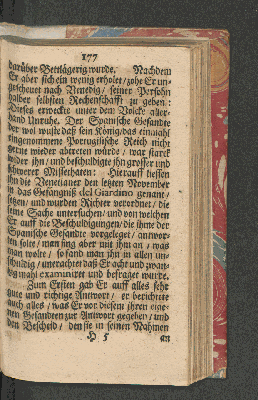 177
darüber Bettlägerig wurde. Nachdem
Er aber sich ein wenig erholet / zohe Er un-
gescheuet nach Venedig / seiner Persohn
halber selbsten Rechenschafft zu geben:
Dieses erweckte unter dem Volcke aller-
hand Unruhe. Der Spanische Gesandte
der wol wuste daß sein König / das einmahl
eingenommene Portugilische Reich nicht
gerne wieder abtreten würde / war starck
wider ihn / und beschuldigte ihn grosser und
schwerer Missethaten: Hierauff liessen
ihn die Venetianer den letzten November
in das Gefängniß del Giardino genant /
setzen / und wurden Richter verordnet / die
seine Sache untersuchen / und von welchen
Er auff die Beschuldigungen / die ihme der
Spanische Gesandte vorgeleget / antwor-
ten solte / man fing aber mit ihm an / was
man wolte / so fand man ihn in allen un-
schuldig / unerachtet daß Er acht und zwan-
tzig mahl examiniret und befraget wurde.
Zum Ersten gab Er auff alles sehr
gute und richtige Antwort / er berichtete
auch alles / was Er vor diesem ihren eige-
nen Gesandten zur Antwort gegeben / und
den Bescheid / den sie in seinen Nahmen
H 5 an